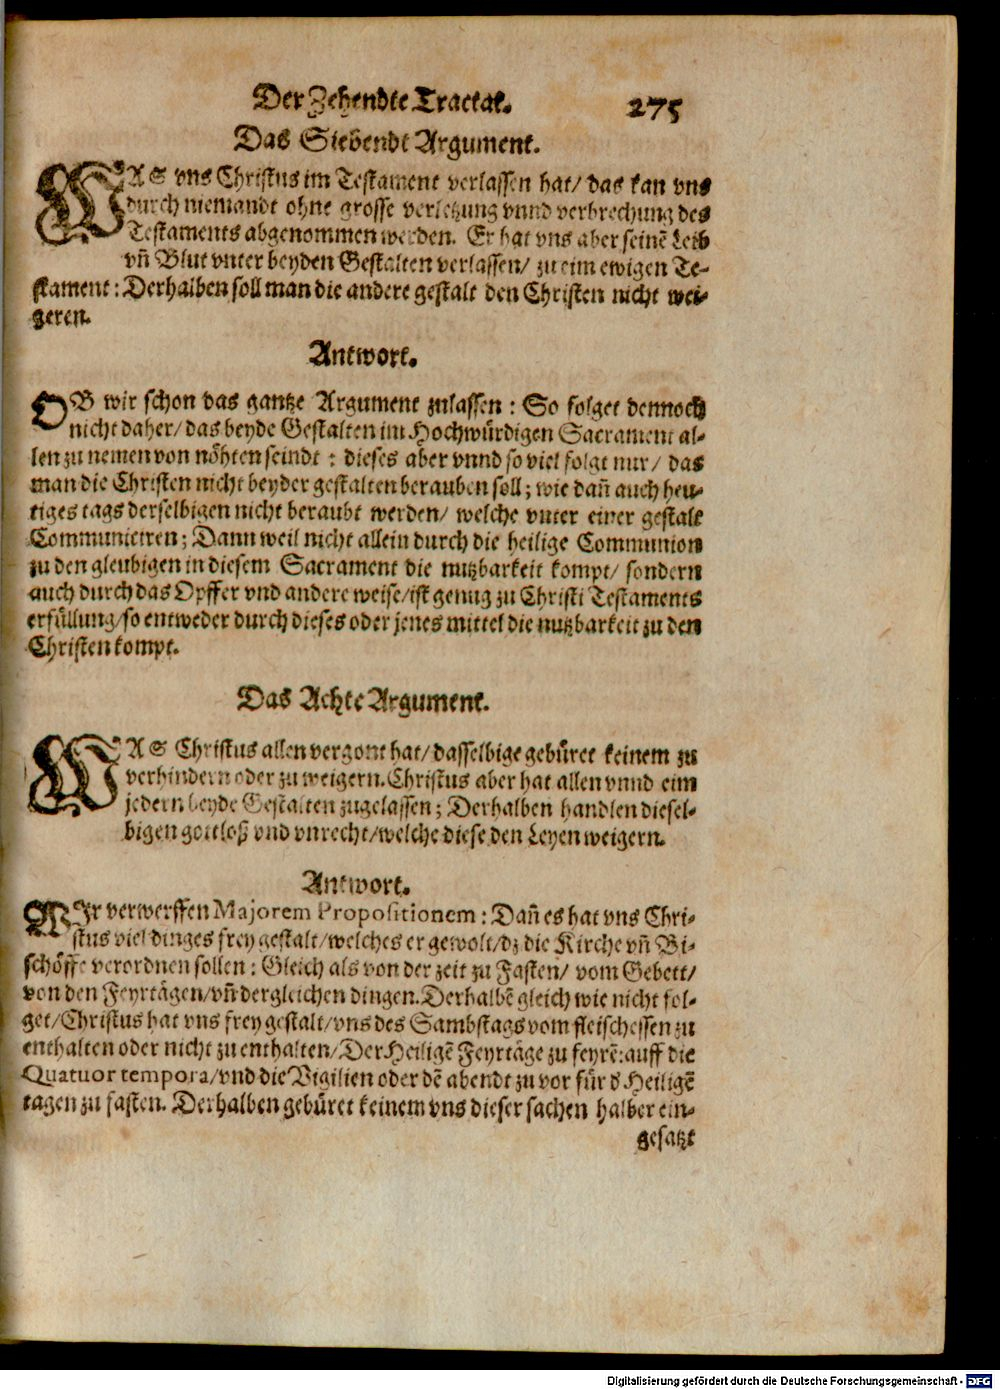 Der Zehendte Tractat. 275
Das Siebendt Argument.
WAS vns Christus im Testament verlassen hat/ das kan vns
durch niemandt ohne grosse verletzung vnnd verbrechung des
Testaments abgenommen werden. Er hat vns aber seinē Leib
vñ Blut vnter beyden Gestalten verlassen/ zu eim ewigen Te-
stament: Derhalben soll man die andere gestalt den Christen nicht wei-
geren.
Antwort.
OB wir schon das gantze Argument zulassen: So folget dennoch
nicht daher/ das beyde Gestalten im Hochwürdigen Sacrament al-
len zu nemen von nöhten seindt: dieses aber vnnd so viel folgt nur/ das
man die Christen nicht beyder gestalten berauben soll; wie dañ auch heu-
tiges tags derselbigen nicht beraubt werden/ welche vnter einer gestalt
Communiciren; Dann weil nicht allein durch die heilige Communion
zu den gleubigen in diesem Sacrament die nutzbarkeit kompt/ sondern
auch durch das Opffer vnd andere weise/ ist genug zu Christi Testaments
erfüllung/ so entweder durch dieses oder jenes mittel die nutzbarkeit zu den
Christen kompt.
Das Achte Argument.
WAS Christus allen vergont hat/ dasselbige gebüret keinem zu
verhindern oder zu weigern. Christus aber hat allen vnnd eim
jedern beyde Gestalten zugelassen; Derhalben handlen diesel-
bigen gottloß vnd vnrecht/ welche diese den Leyen weigern.
Antwort.
WIr verwerffen Majorem Propositionem: Dañ es hat vns Chri-
stus viel dinges frey gestalt/ welches er gewolt/ dz die Kirche vñ Bi-
schöffe verordnen sollen: Gleich als von der zeit zu Fasten/ vom Gebett/
von den Feyrtägen/ vñ dergleichen dingen. Derhalbē gleich wie nicht fol-
get/ Christus hat vns frey gestalt/ vns des Sambstags vom fleischessen zu
enthalten oder nicht zu enthalten/ Der Heiligē Feyrtäge zu feyrē: auff die
Quatuor tempora/ vnd die Vigilien oder dē abendt zu vor für d Heiligē
tagen zu fasten. Derhalben gebüret keinem vns dieser sachen halber ein-
gesatzt
Digitalisierung gefördert durch die Deutsche Forschungsgemeinschaft - DFG